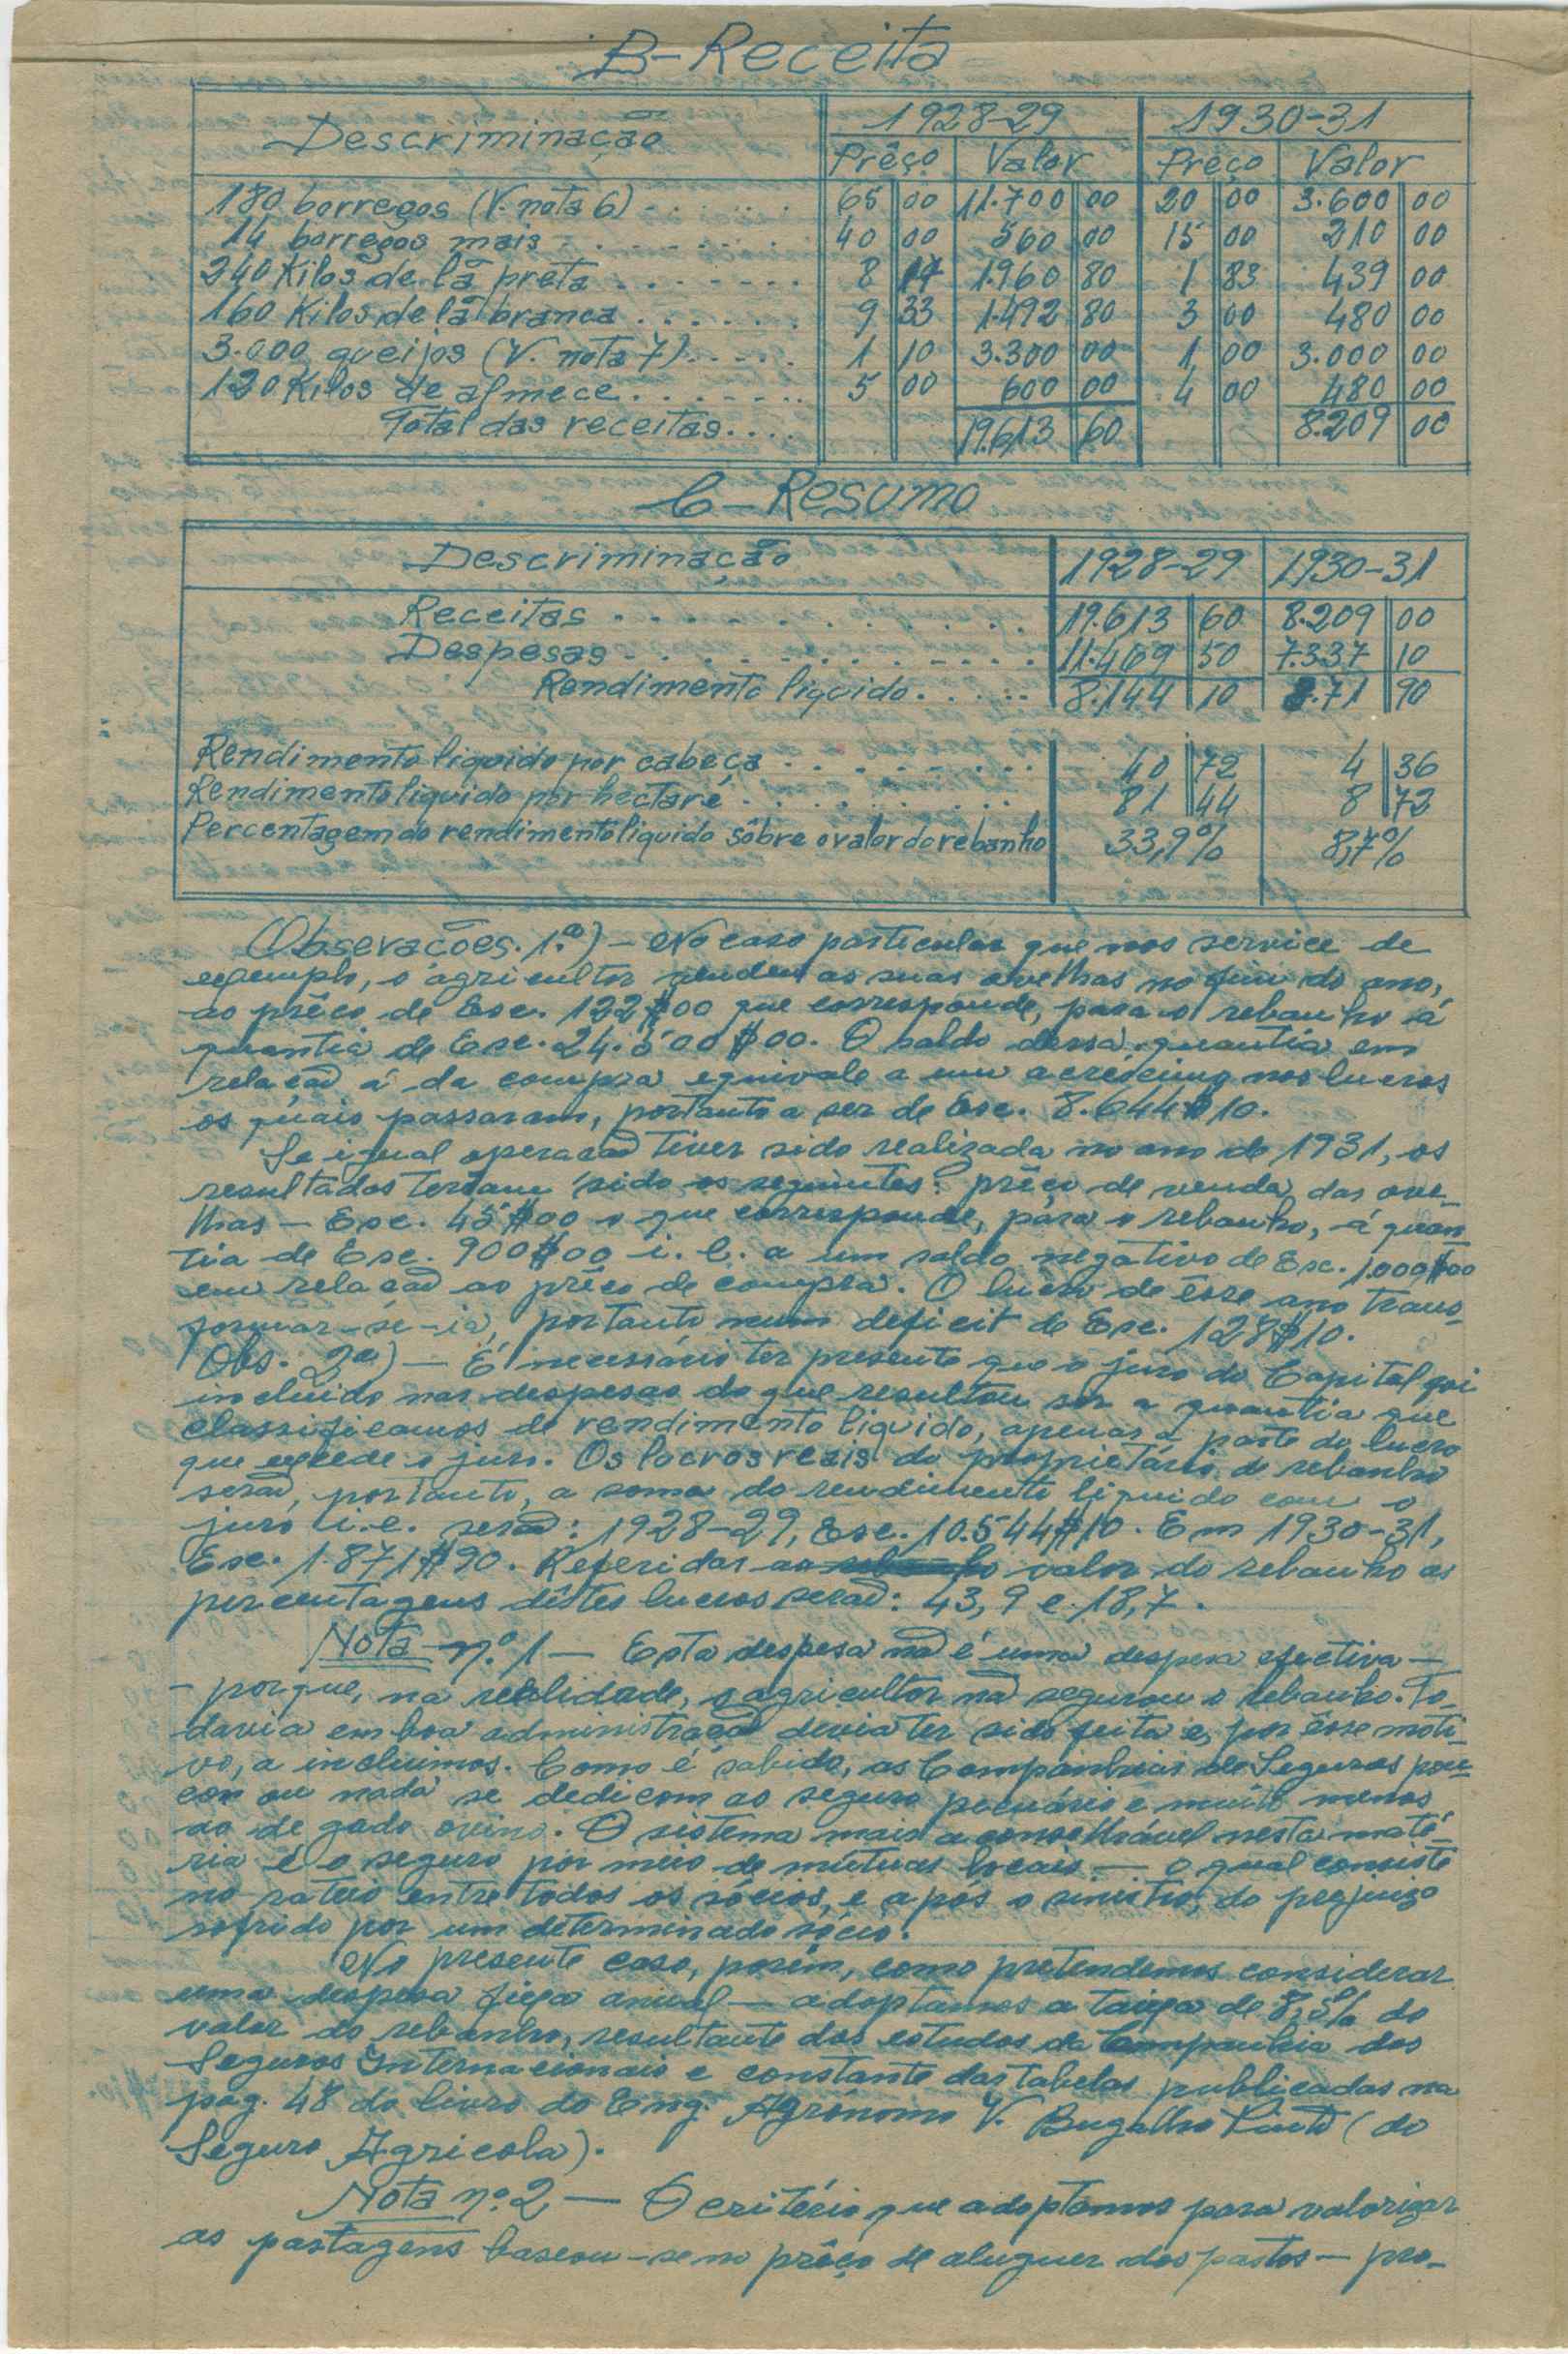 B-Receita
Descriminação 1928-29 1930-31
Prêço Valor Prêço Valor
180 borregos (V. nota 6) 65 00 11.700 00 20 00 3.600 00
14 borregos mais 40 00 560 00 15 00 210 00
240 Kilos de lã preta 8 17 1.960 80 1 83 439 00
160 Kilos de lã branca 9 33 1.492 80 3 00 480 00
3.000 queijos (V. nota 7) 1 10 3.300 00 1 00 3.000 00
120 Kilos de almece 5 00 600 00 4 00 480 00
Total das receitas 19.613 60 8.209 00
C-Resumo
Descriminação 1928-29 1930-31
Receitas 19.613 60 8.209 00
Despesas 11.469 50 7.337 10
Rendimento liquido 8.144 10 871 90
Rendimento liquido por cabeça 40 72 4 36
Rendimento liquido por hectare 81 44 8 72
Percentagem do rendimento liquido sôbre o valor do rebanho 33,9% 8,7%
Obsevações. 1.ª) - No caso particular que nos service de
exemplo, o agricultor vendeu as suas ovelhas no fim do ano,
ao prêço de Esc. 122$00 que corresponde, para o rebanho á
quantia de Esc. 24.500$00. O saldo dessa quantia em
relacão á da compra equivale a um acréscimo nos lucros
os quais passaram, portanto a ser de Esc. 8.644$10.
Se igual operacão tiver sido realizada no ano de 1931, os
resultados teriam sido os seguintes: prêço de venda das ove-
lhas - Esc. 45$00 o que corresponde, para o rebanho, á quan-
tia de Esc. 900$00 i. é. a um saldo negativo de Esc. 1.000$00
em relacão ao prêço de compra. O lucro de êsse ano trans-
formar-se-ia, portanto num deficit de Esc. 128$10.
Obs. 2ª) - É necessário ter presente que o juro do Capital foi
incluido nas despesas do que resultou ser a quantia que
classificamos de rendimento liquido, apenas a parte do lucro
que excede o juro. Os lucros reais do proprietário do rebanho
serão, portanto, a soma do rendimento liquido com o
juro i.e. serão: 1928-29, Esc. 10.544$10. Em 1930-31,
Esc. 1.871$90. Referidas ao valor do rebanho as
percentagens dêstes lucros serão: 43,9 e 18,7.
Nota nº. 1 - Esta despesa não é uma despesa efectiva -
- porque, na realidade, o agricultor não segurou o rebanho. To-
davia em boa administração devia ter sido feita e, por êsse moti-
vo, a incluimos. Como é sabido, as Companhias de Seguros pou-
cos ou nada se dedicam ao seguro pecuário e muito menos
ao de gado ovino. O sistema mais aconselhável nesta maté-
ria é o seguro por meio de mútuas locais - o qual consiste
no rateio entre todos os sócios, e após o sinistro, do prejuizo
sofrido por um determinado sócio.
No presente caso, porém, como pretendemos considerar
uma despesa fixa anual - adoptamos a taixa de 8,5% do
valor do rebanho, resultante dos estudos da Companhia dos
Seguros Internacionais e constante das tabelas publicadas na
pag. 48 do livro do Eng. Agrónomo V. Bugalho Pinto (do
Seguro Agricola).
Nota nº. 2 - O critério que adoptamos para valorizar
as pastagens baseou-se no prêço de aluguer dos pastos - pro-